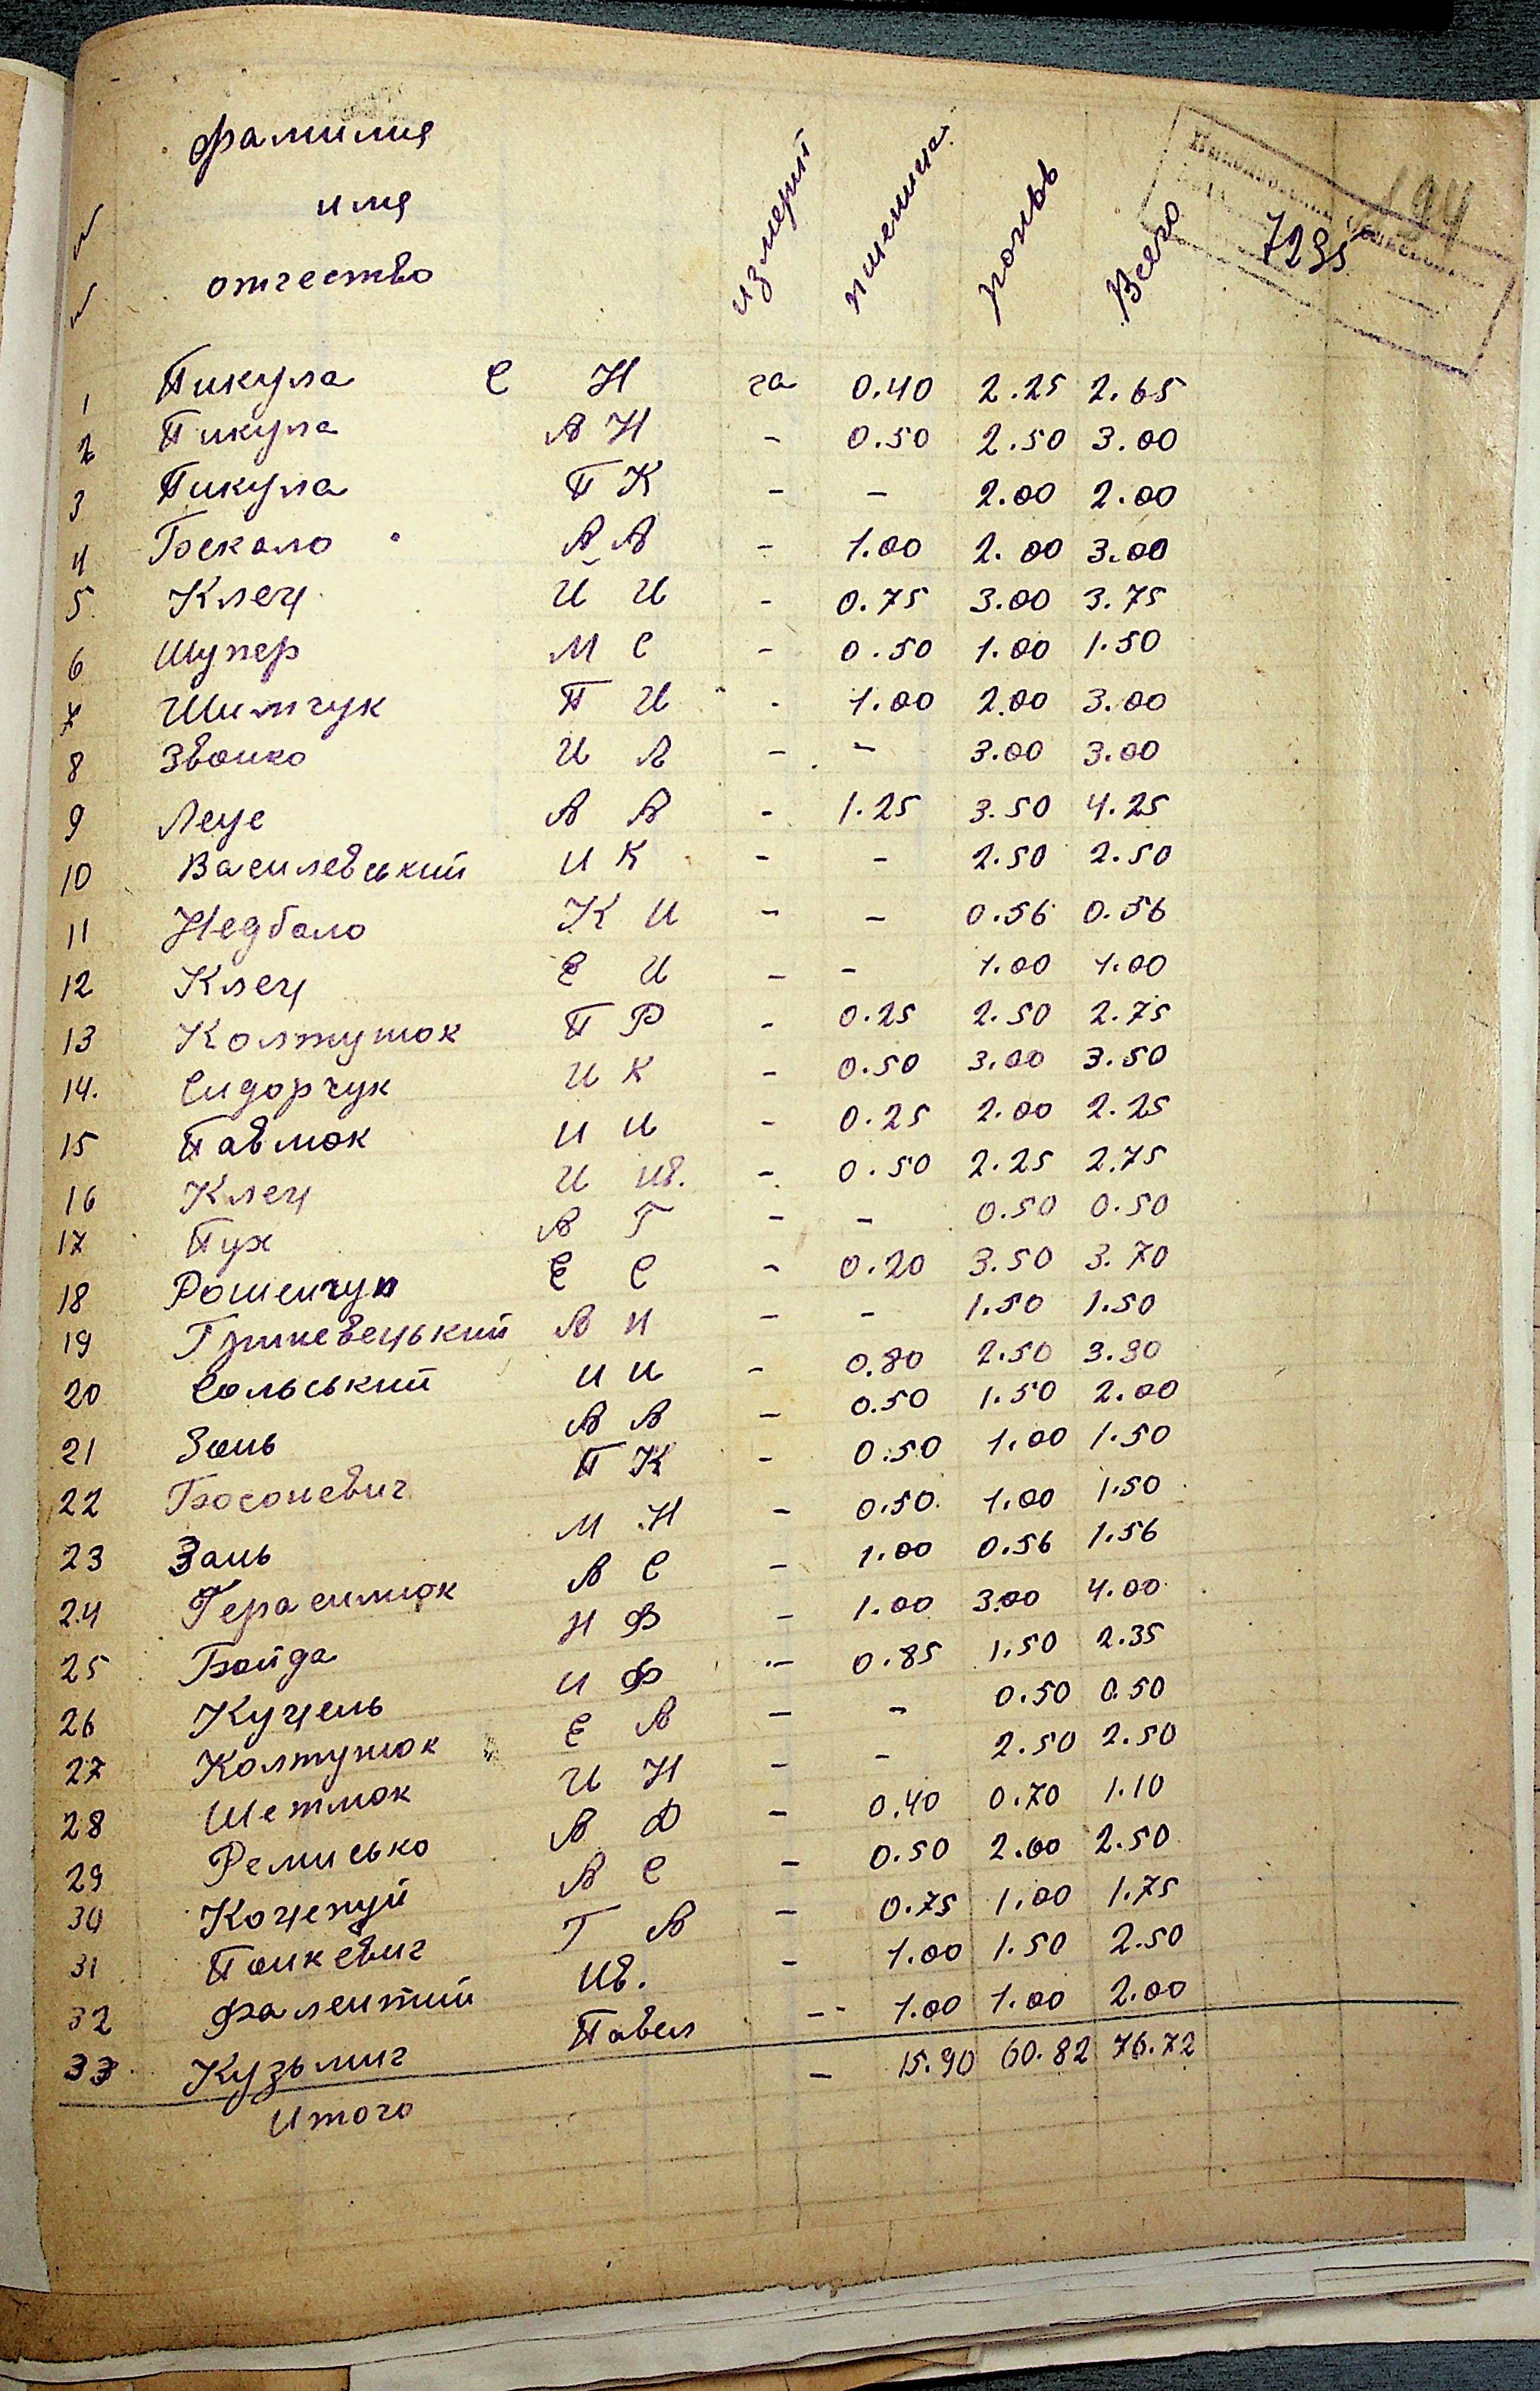 № фамилия имя отчество измерит пшеница рожь Всего
194
7295
1 Пикула С Н га 0.40 2.25 2.65
2 Пикула А Н - 0.50 2.50 3.00
3 Пикула П К - - 2.00 2.00
4 Бекало А А - 1.00 2.00 3.00
5 Клец И И - 0.75 3.00 3.75
6 Шупер М С - 0.50 1.00 1.50
7 Шимчук П И - 1.00 2.00 3.00
8 Звонко И А - - 3.00 3.00
9 Леус А А - 1.25 3.50 4.25
10 Василевський И К - - 2.50 2.50
11 Недбало К И - - 0.56 0.56
12 Клец Е И - - 1.00 1.00
13 Колтунюк П Р - 0.25 2.50 2.75
14. Сидорчук И К - 0.50 3.00 3.50
15 Павлюк И И - 0.25 2.00 2.25
16 Клец И Ив. - 0.50 2.25 2.75
17 Пух А Г - - 0.50 0.50
18 Рошенчук Е С - 0.20 3.50 3.70
19 Гриневецький А И - - 1.50 1.50
20 Сольський И И - 0.80 2.50 3.30
21 Зань А А - 0.50 1.50 2.00
22 Босоневич П К - 0.50 1.00 1.50
23 Зань М Н - 0.50 1.00 1.50
24 Герасимюк А С - 1.00 0.56 1.56
25 Бойда Н Ф - 1.00 3.00 4.00
26 Куцель И Ф - 0.85 1.50 2.35
27 Колтунюк Е А - - 0.50 0.50
28 Шетлюк И Н - - 2.50 2.50
29 Ремисько А Ф - 0.40 0.70 1.10
30 Коцепуй А С - 0.50 2.00 2.50
31 Панкевич Г А - 0.75 1.00 1.75
32 Фалентий Ив. - 1.00 1.50 2.50
33 Кузьмич Павел - 1.00 1.00 2.00
Итого - 15.90 60.82 76.72